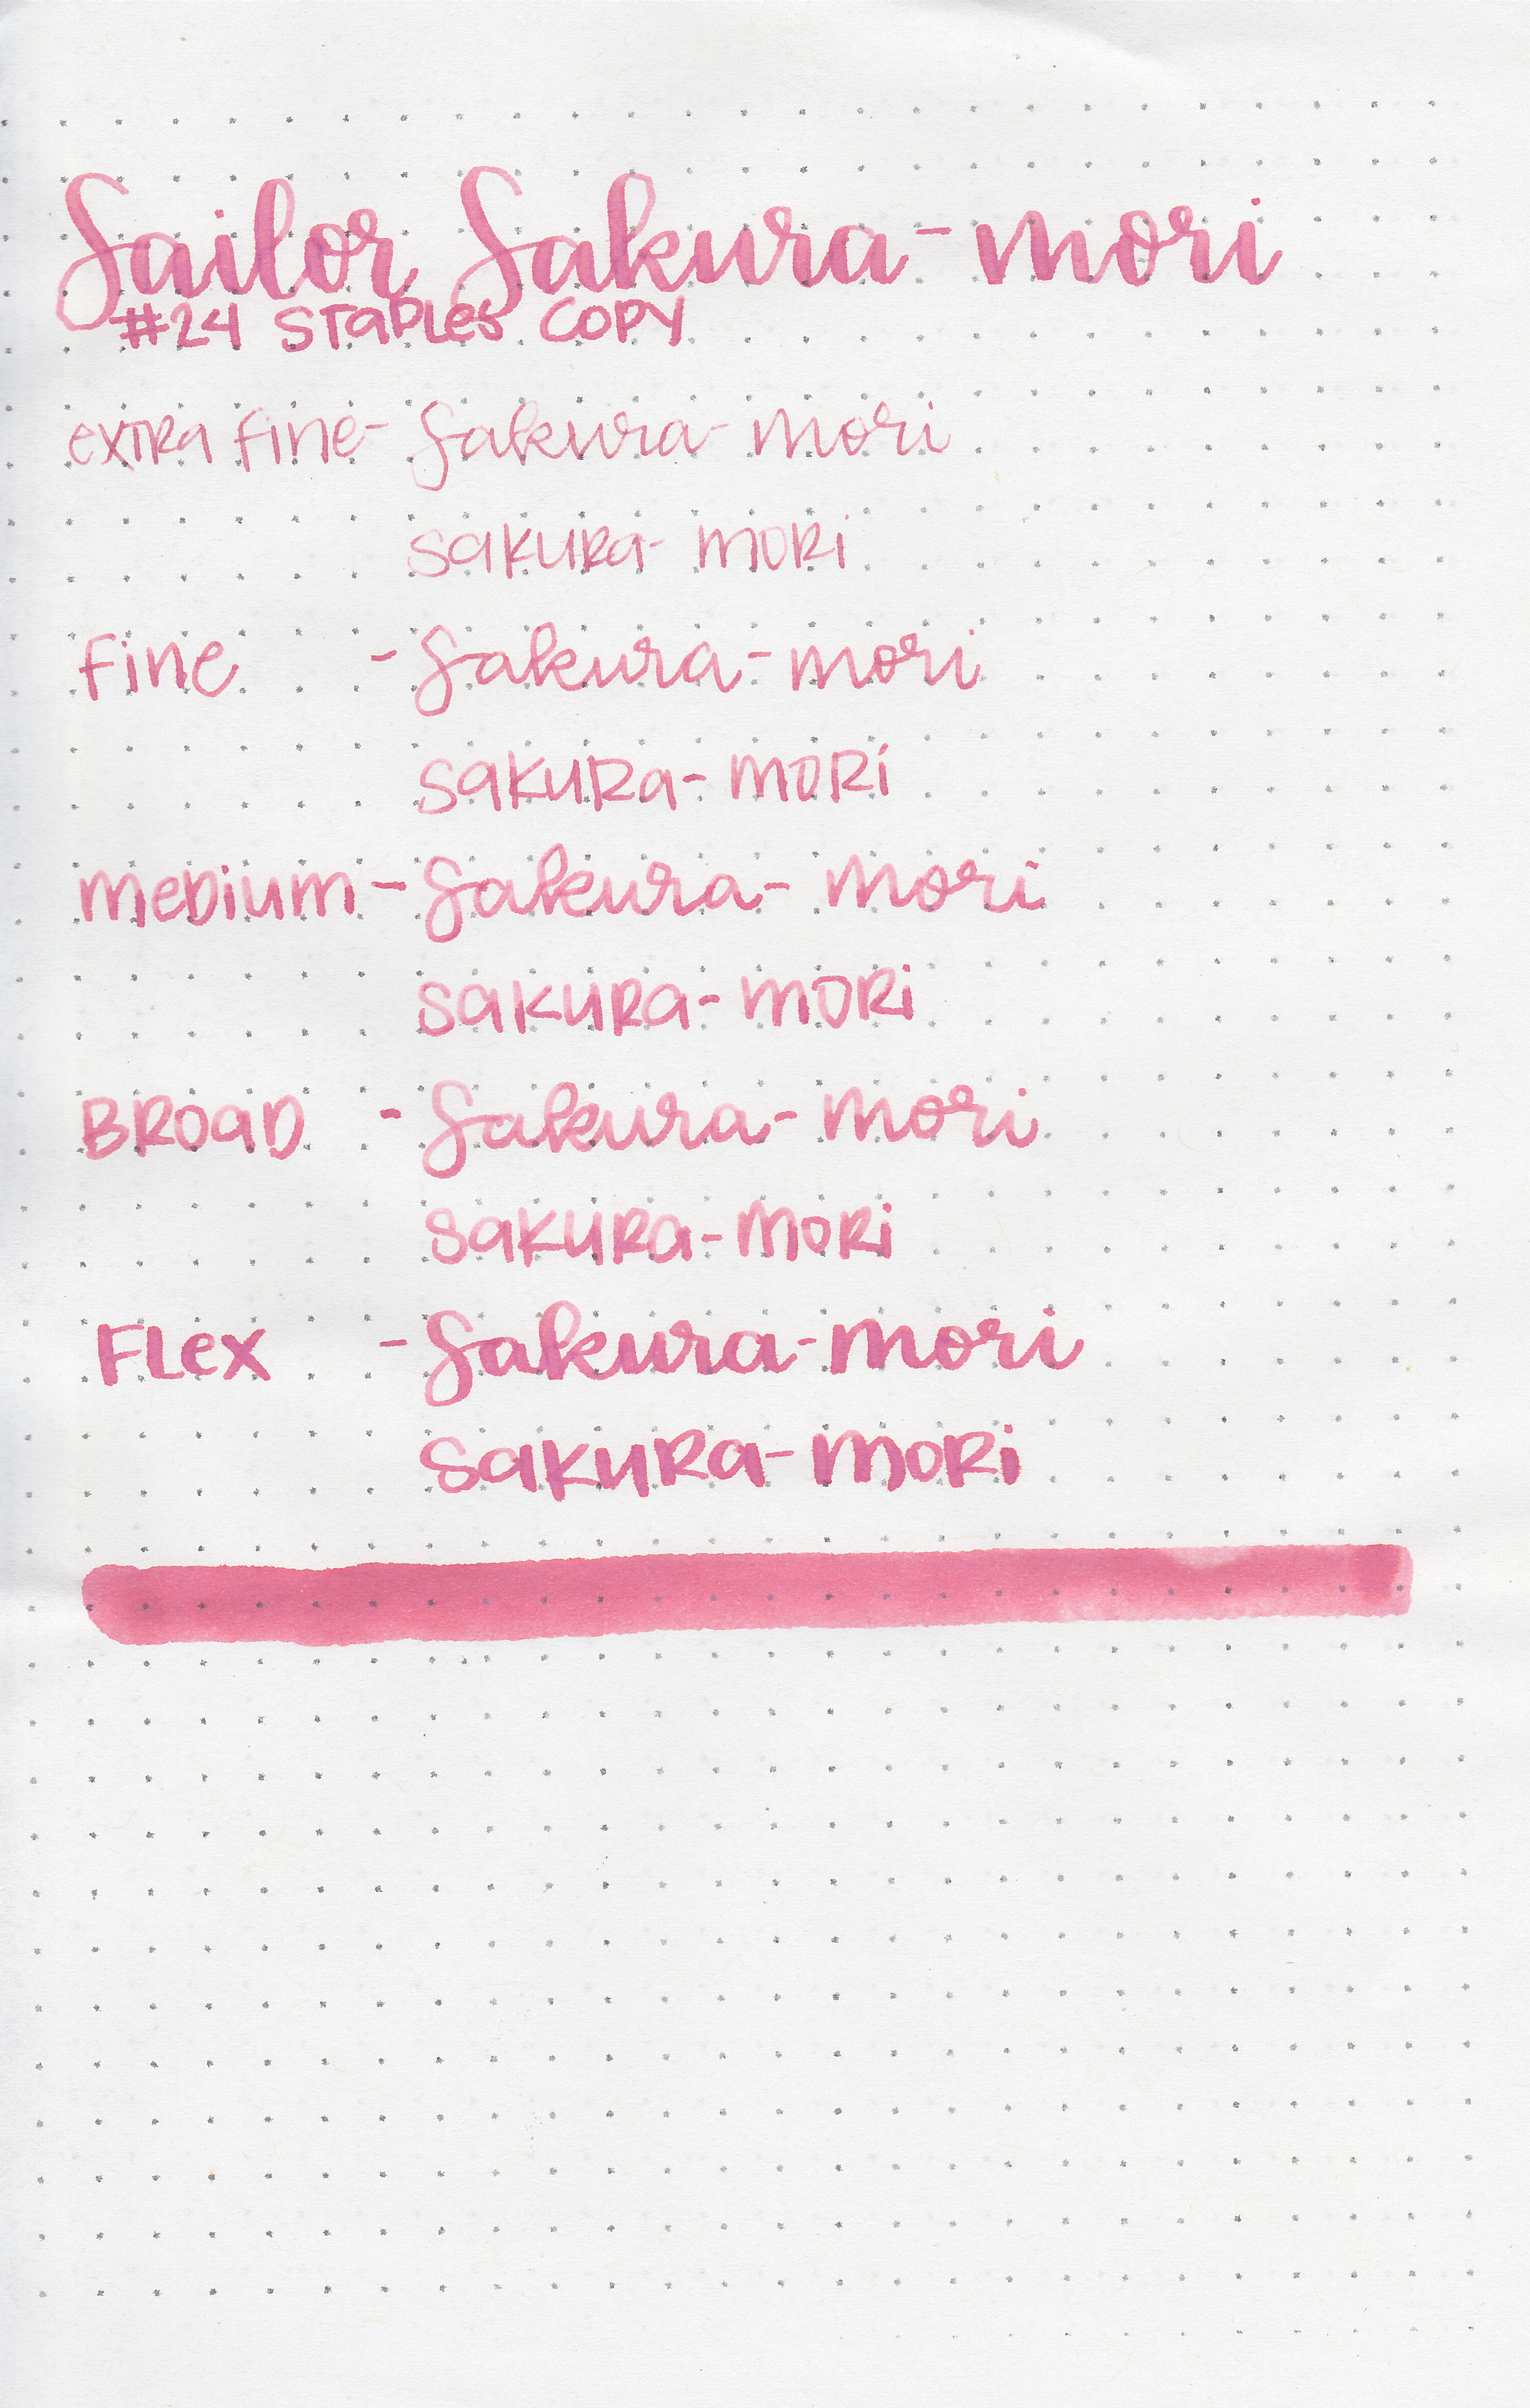 Sailor Sakura-mori
#24 Staples Copy
extra fine- Sakura-mori
Sakura-mori
Fine - Sakura-mori
Sakura-mori
Medium - Sakura-mori
Sakura-mori
Broad - Sakura-mori
Sakura-mori
Flex - Sakura-mori
Sakura-mori